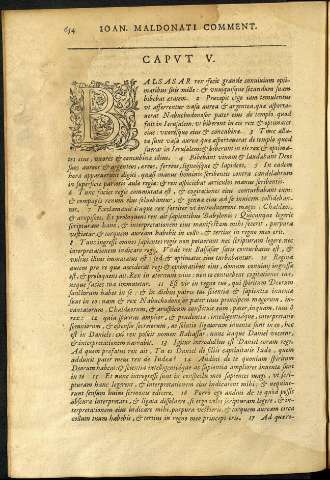 654 IOAN. MALDONATI COMMENT.
CAPVT V.
BALSASAR rex fecit grande conuiuium opti-
matibus suis mille: & vnusquisque secundum suam
bibebat ætatem. 2 Præcepit ergo iam temulentus
vt afferrentur vasa aurea & argentea, quæ asporta-
uerat Nabuchodonosor pater eius de templo, quod
fuit in Ierusalem, vt biberent in eis rex & optimates
eius: vxoresque eius & concubinæ. 3 Tunc alla-
ta sunt vasa aurea quæ asportauerat de templo quod
fuerat in Ierusalem: & biberunt in eis rex & optima-
tes eius, vxores & concubinæ illius. 4 Bibebant vinum & laudabant Deos
suos aureos & argenteos, æreos, ferreos, ligneosque & lapideos. 5 In eadem
hora apparuerunt digiti, quasi manus hominis scribentis contra candelabrum
in superficie parietis aulæ regiæ: & rex aspiciebat articulos manus scribentis.
6 Tunc facies regis commutata est, & cogitationes eius conturbabant eum:
& compages renum eius soluebantur, & genua eius ad se inuicem collideban-
tur. 7 Exclamauit itaque rex fortiter vt introducerent magos, Chaldæos,
& aruspices. Et proloquens rex ait sapientibus Babylonis: Quicunque legerit
scripturam hanc, & interpretationem eius manifestam mihi fecerit, purpura
vestietur, & torquem auream habebit in collo & tertius in regno meo erit.
8 Tunc ingressi omnes sapientes regis non potuerunt nec scripturam legere, nec
interpretationem indicare regi. 9 Vnde rex Baltasar satis conturbatus est, &
vultus illius immutatus est: sed & optimates eius turbabantur. 10 Regina
autem pro re quæ acciderat regi & optimatibus eius, domum conuiuij ingressa
est, & proloquens ait: Rex in æternum viue: non te conturbent cogitationes tuæ,
neque facies tua immutetur. 11 Est vir in regno tuo, qui spiritum Deorum
sanctorum habet in se: & in diebus patris tui scientia & sapientia inuentæ
sunt in eo: nam & rex Nabuchodonosor pater tuus principem magorum, in-
cantatorum, Chaldæorum, & aruspicum constituit eum, pater, inquam, tuus ô
rex: 12 quia spiritus amplior, & prudentia, intelligentiaque, interpretatio
somniorum, & ostensio secretorum, ac solutio ligatorum inuentæ sunt in eo, hoc
est in Daniele: cui rex posuit nomen Baltassar: nunc itaque Daniel vocetur,
& interpretationem narrabit. 13 Igitur introductus est Daniel coram rege.
Ad quem præfatus rex ait: Tu es Daniel de filiis captiuitatis Iudæ, quem
adduxit pater meus rex de Iudæa? 14 Audiui de te quoniam spiritum
Deorum habeas: & scientia intelligentiaque ac sapientia ampliores inuentæ sunt
in te. 15 Et nunc introgressi sunt in conspectu meo sapientes magi, vt scri-
pturam hanc legerent, & interpretationem eius indicarent mihi: & nequiue-
runt sensum huius sermonis edicere. 16 Porro ego audiui de te quod possis
obscura interpretari, & ligata dissoluere, si ergo vales scripturam legere, & in-
terpretationem eius indicare mihi, purpura vestieris, & torquem auream circa
collum tuum habebis, & tertius in regno meo princeps eris. 17 Ad quæ re-